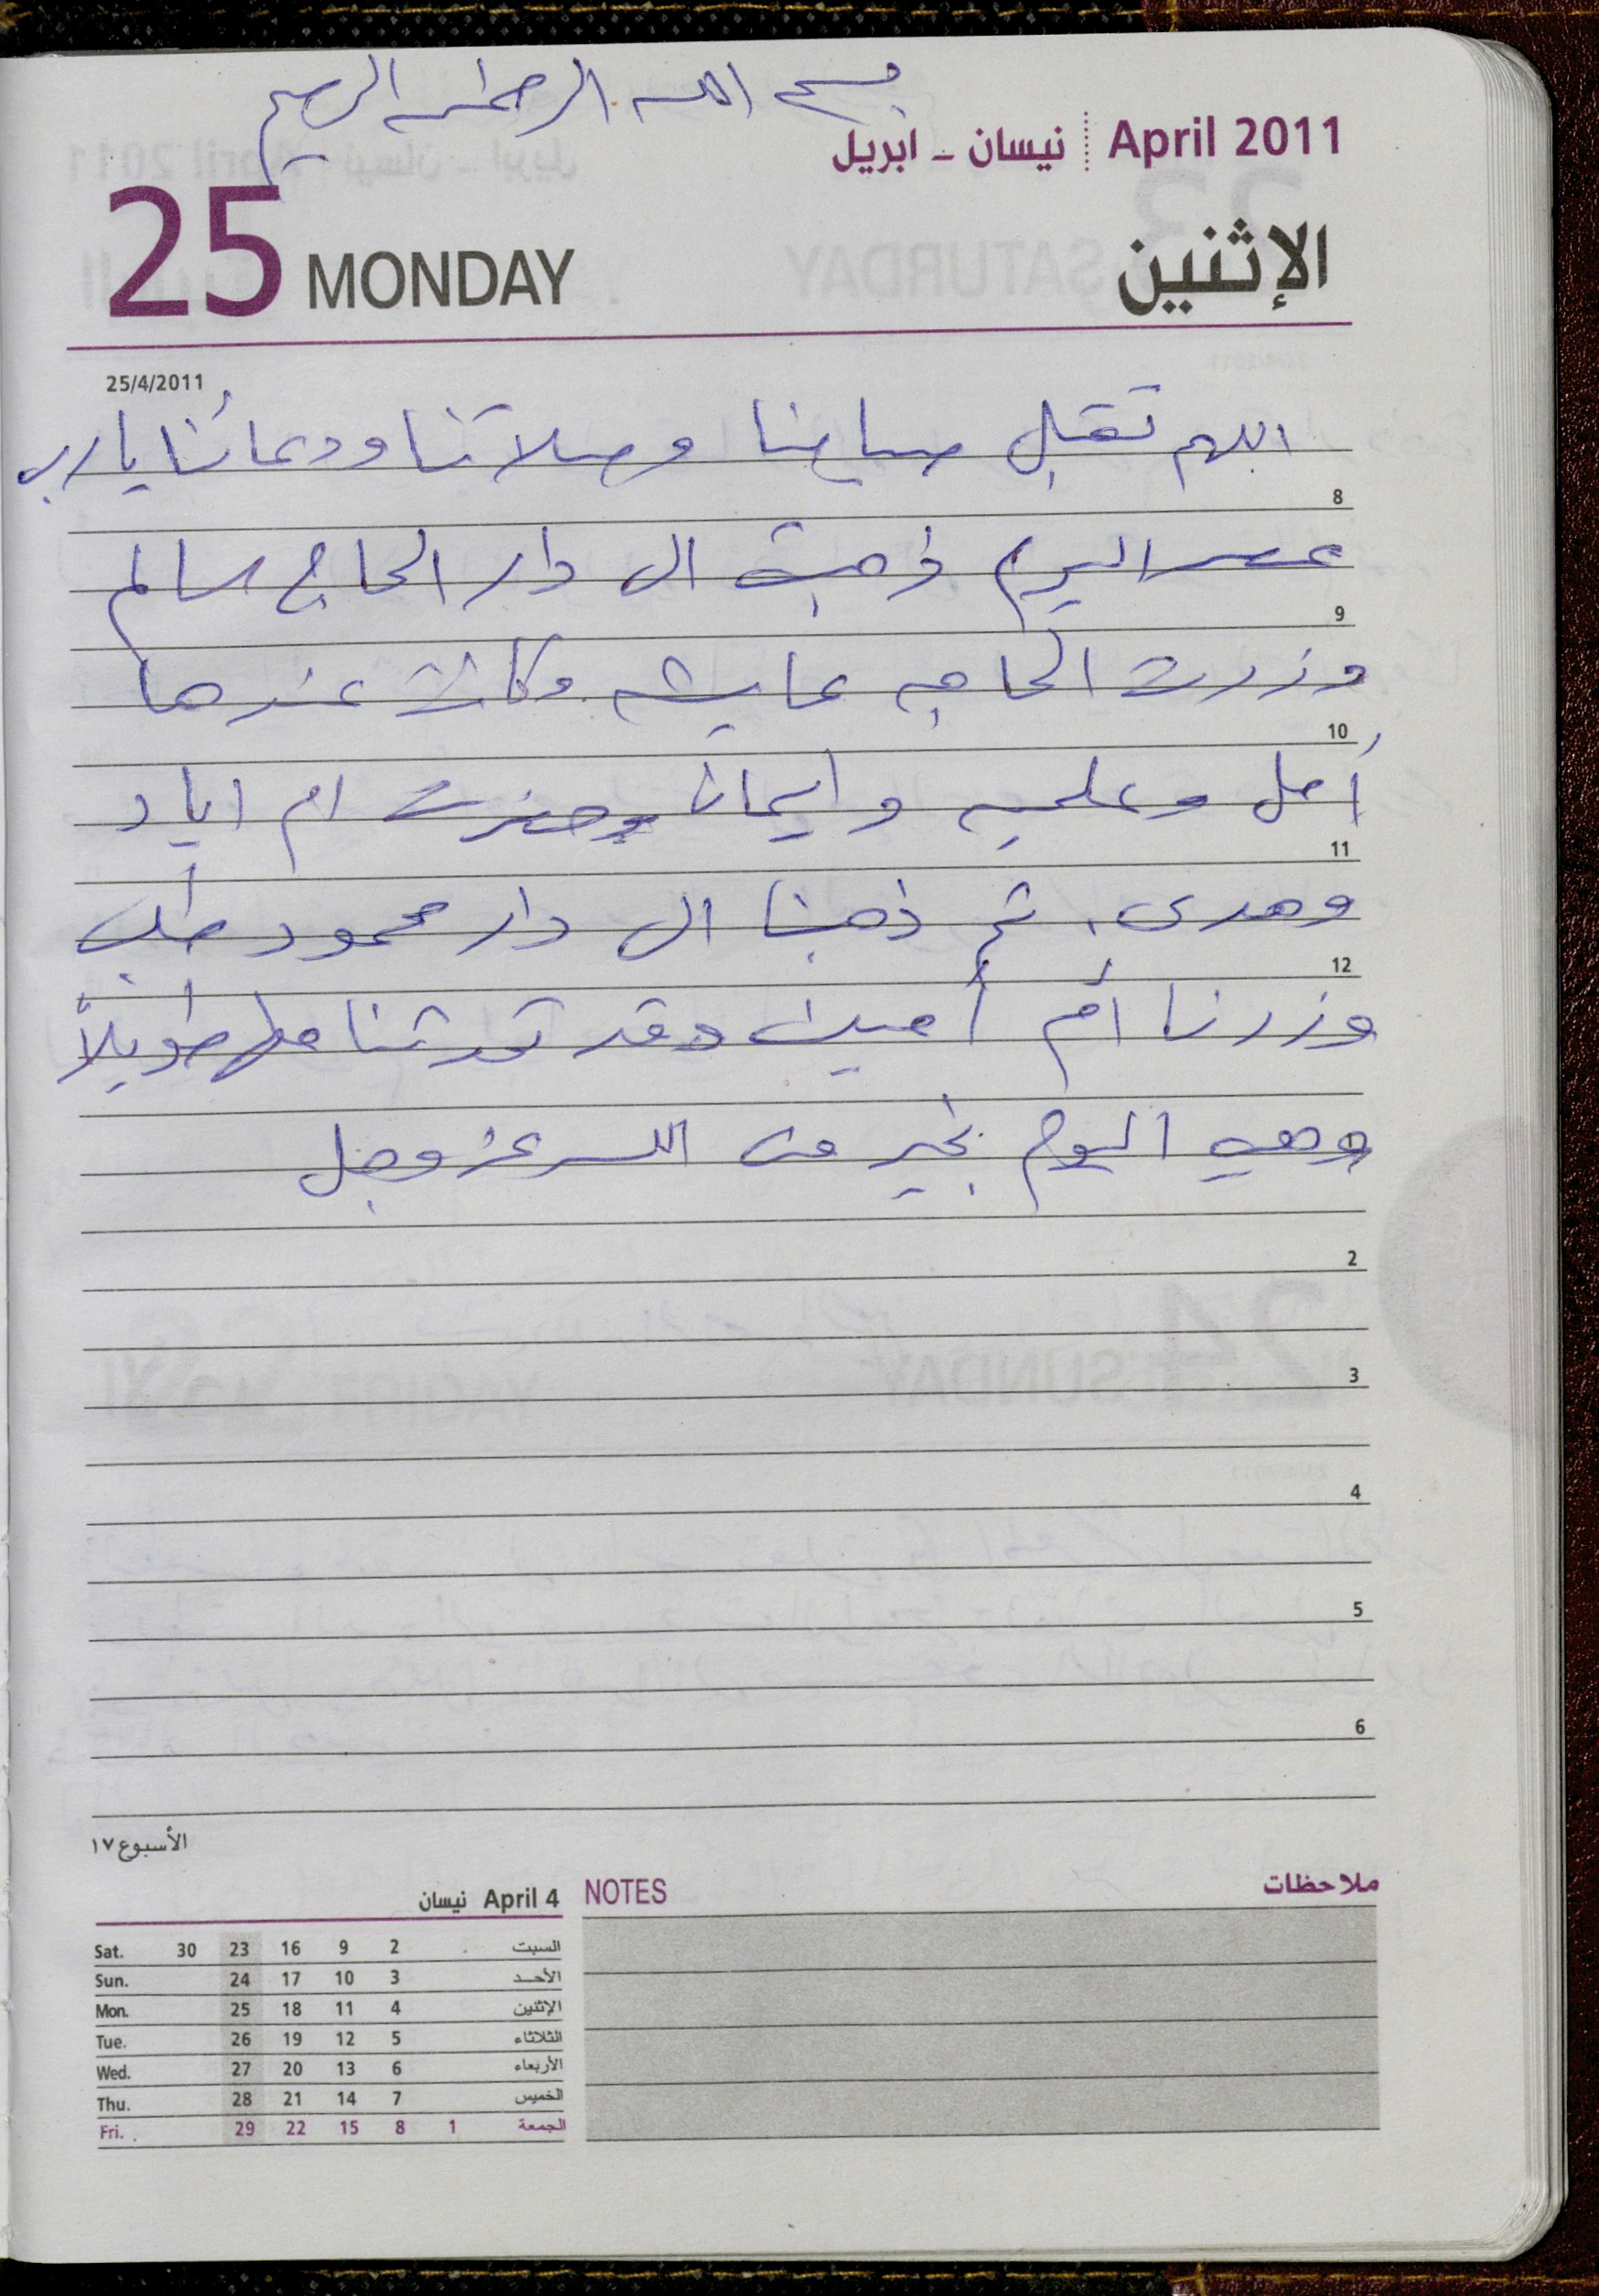 بسم الله الرحمن الرحيم
April 2011 نيسان - ابريل
25 MONDAY الإثنين
25/4/2011
اللهم تقبل صيامنا وصلاتنا ودعائنا يا رب
8
عصر اليوم ذهبت الى دار الحاج سالم
9
وزرت الحاجه عايشه وكانت عندها
10
أمل وعلميه وايمان وحضرت ام اياد
11
وهدى. ثم ذهبنا الى دار محمود طلب
12
وزرنا أم أمين وقد تحدثنا معها طويلاً
وهي اليوم بخير من الله عز وجل
2
3
4
5
6
الأسبوع ١٧
April 4 نيسان
NOTES ملاحظات
Sat. 30 23 16 9 2 السبت
Sun. 24 17 10 3 الأحد
Mon. 25 18 11 4 الإثنين
Tue. 26 19 12 5 الثلاثاء
Wed. 27 20 13 6 الأربعاء
Thu. 28 21 14 7 الخميس
Fri. 29 22 15 8 1 الجمعة